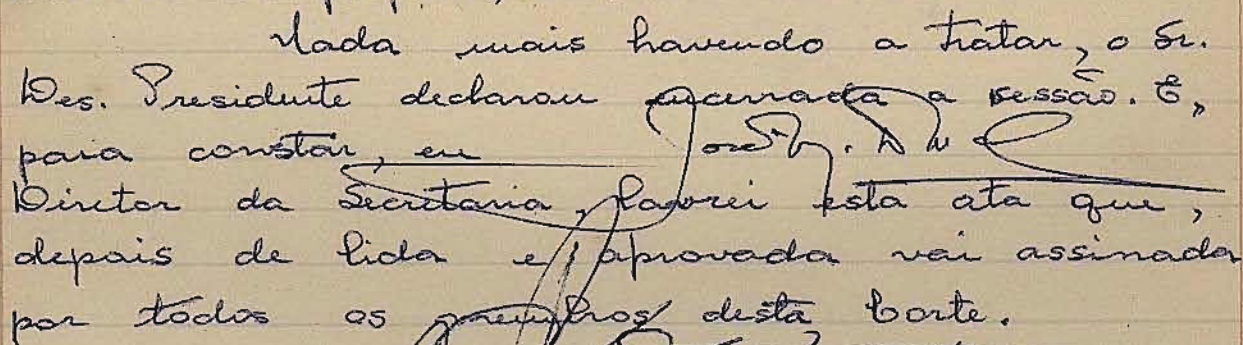 Nada mais havendo a tratar, o Sr.
Des. Presidente declarou encerrada a sessão. E,
para constar, eu José
Diretor da Secretaria, lavrei esta ata que,
depois de lida e aprovada vai assinada
por todos os membros desta Corte.